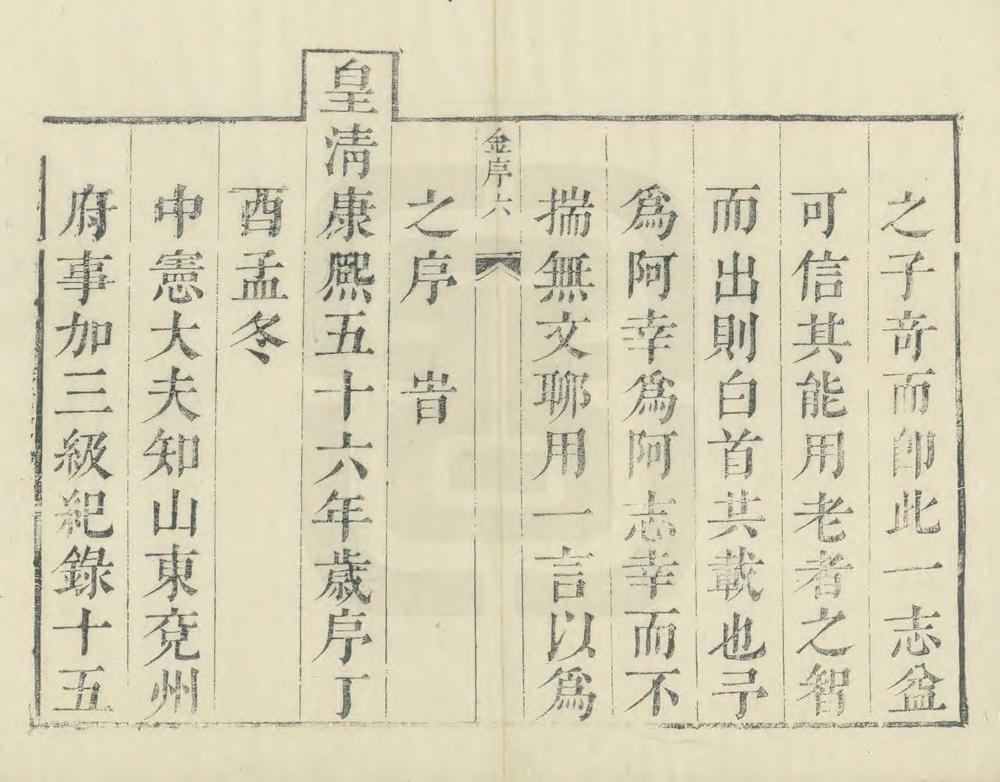 之子竒而卽此一志益
可信其能用老者之智
而出則白首共載也予
爲阿幸爲阿志幸而不
揣無文聊用一言以爲
金序六
之序　旹
皇清康熙五十六年歲序丁
酉孟冬
中憲大夫知山東兗州
府事加三級紀錄十五